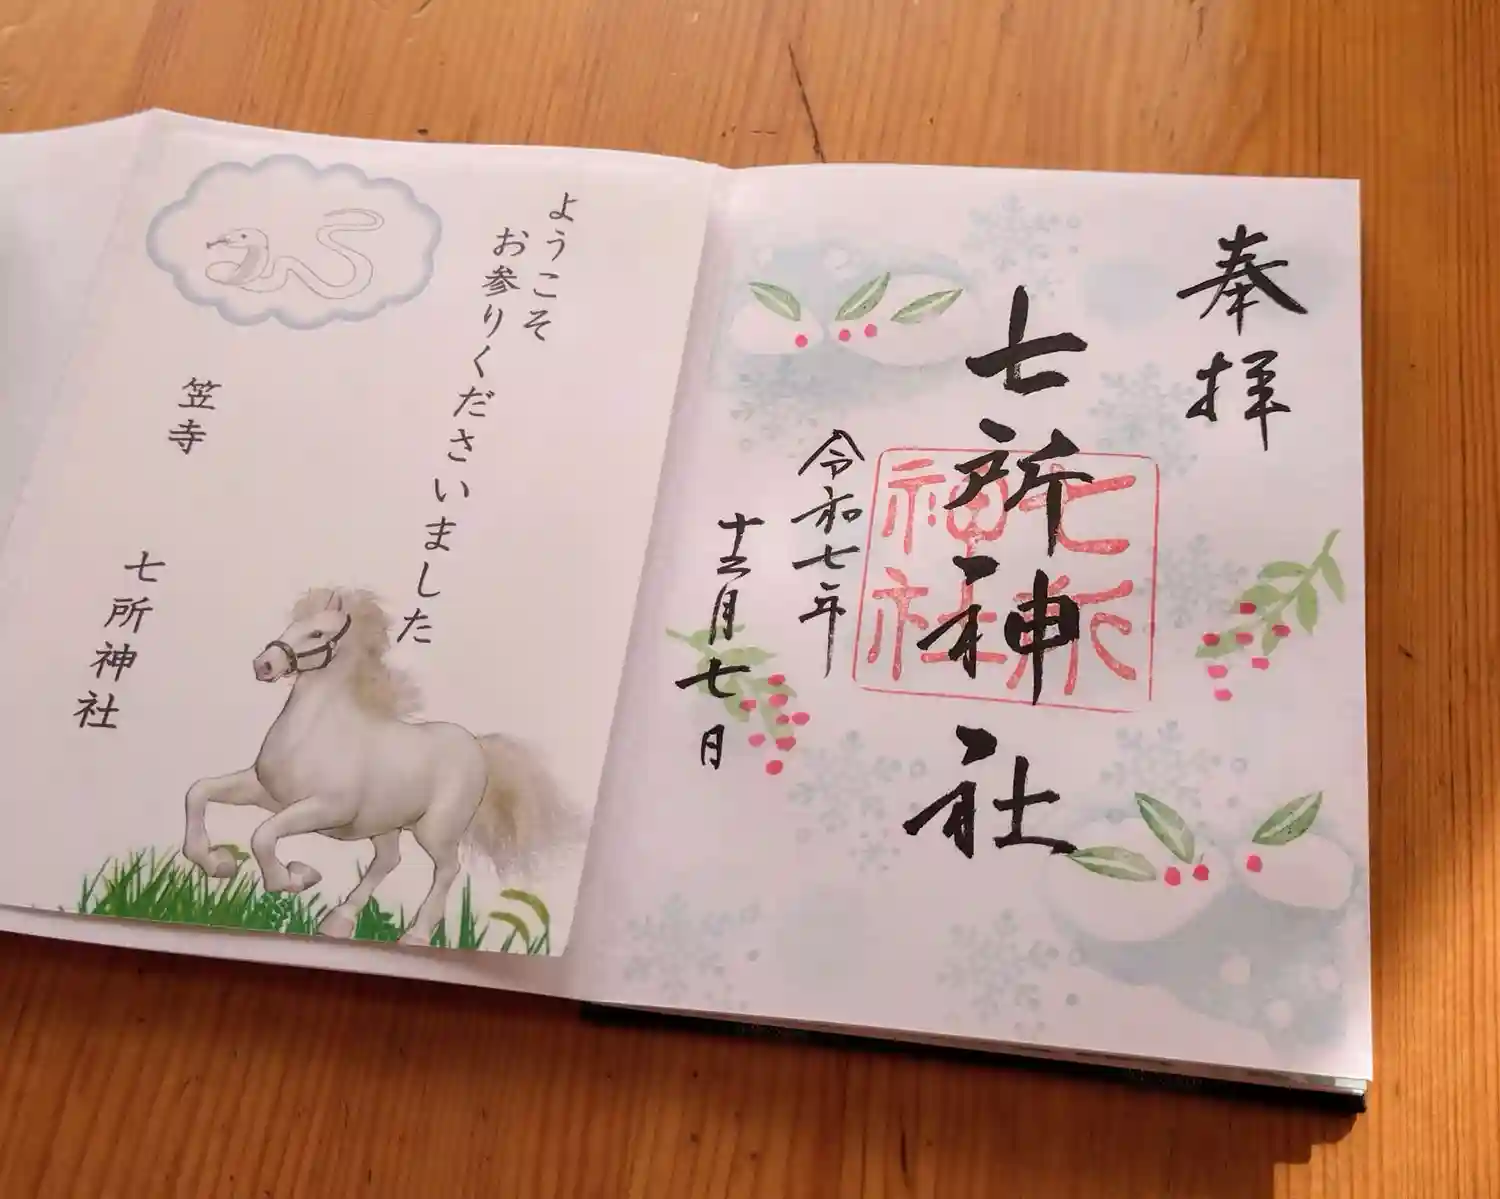 奉拝
七所神社
七所
神社
令和七年
十二月七日
ようこそ
お参りくださいました
笠寺
七所神社